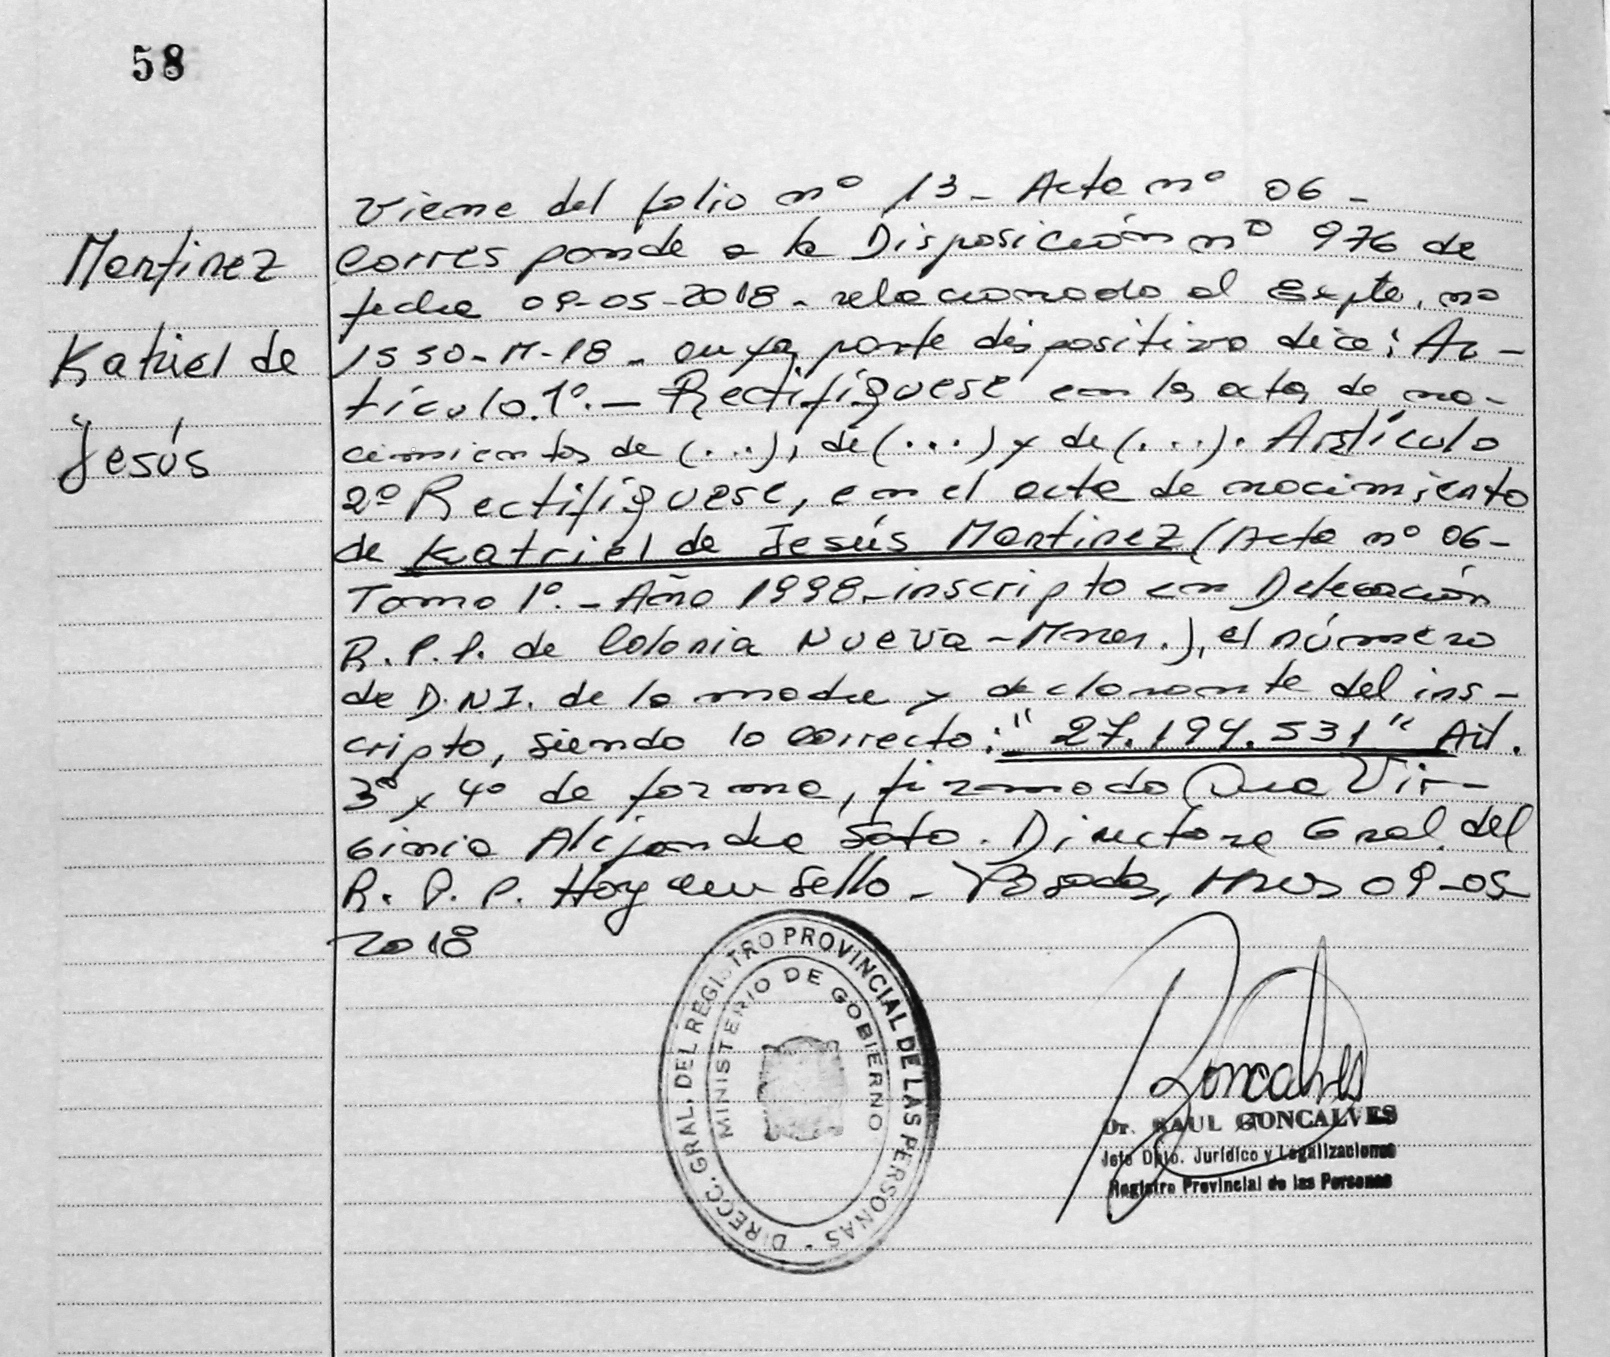 58
Martinez
Katriel de
Jesús
Viene del folio nº 13 - Acta nº 06 -
Corresponde a la Disposición nº 976 de
fecha 09-05-2018 - relacionado al Expte. nº
1550-M-18 - cuya parte dispositiva dice: Ar-
tículo 1º.- Rectifíquese en las actas de na-
cimientos de (...), de (...) y de (...). Artículo
2º Rectifíquese, en el acta de nacimiento
de Katriel de Jesús Martinez (Acta nº 06-
Tomo 1º.- Año 1998-inscripto en Delegación
R.P.P. de Colonia Nueva - Mnes.), el número
de D.N.I. de la madre y declarante del ins-
cripto, siendo lo correcto: "27.194.531" Art.
3º y 4º de forma, firmado Dra Vir-
ginia Alejandra Soto. Directora Gral. del
R.P.P. Hay un sello - Posadas, Mnes 09-05-
2018
DIRECC. GRAL. DEL REGISTRO PROVINCIAL DE LAS PERSONAS -
MINISTERIO DE GOBIERNO
Goncalves
Dr. RAUL GONCALVES
Jefe Dpto. Jurídico y Legalizaciones
Registro Provincial de las Personas